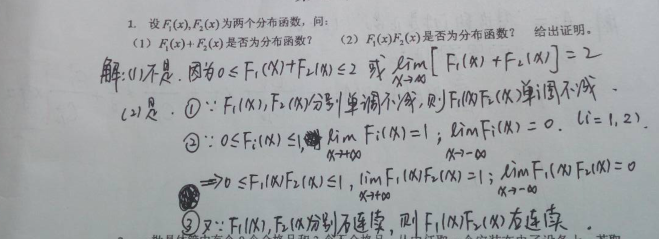 1. 设F₁(x),F₂(x)为两个分布函数，问：
（1）F₁(x)+F₂(x)是否为分布函数？ （2）F₁(x)F₂(x)是否为分布函数？ 给出证明。
解:(1)不是. 因为0≤F₁(x)+F₂(x)≤2 或 lim x→∞ [F₁(x)+F₂(x)]=2
(2)是. ①∵F₁(x),F₂(x)分别单调不减,则F₁(x)F₂(x)单调不减.
②∵0≤Fᵢ(x)≤1, lim x→+∞ Fᵢ(x)=1; lim x→-∞ Fᵢ(x)=0. (i=1,2).
⇒0≤F₁(x)F₂(x)≤1, lim x→+∞ F₁(x)F₂(x)=1; lim x→-∞ F₁(x)F₂(x)=0
③又∵F₁(x),F₂(x)分别右连续, 则F₁(x)F₂(x)右连续.